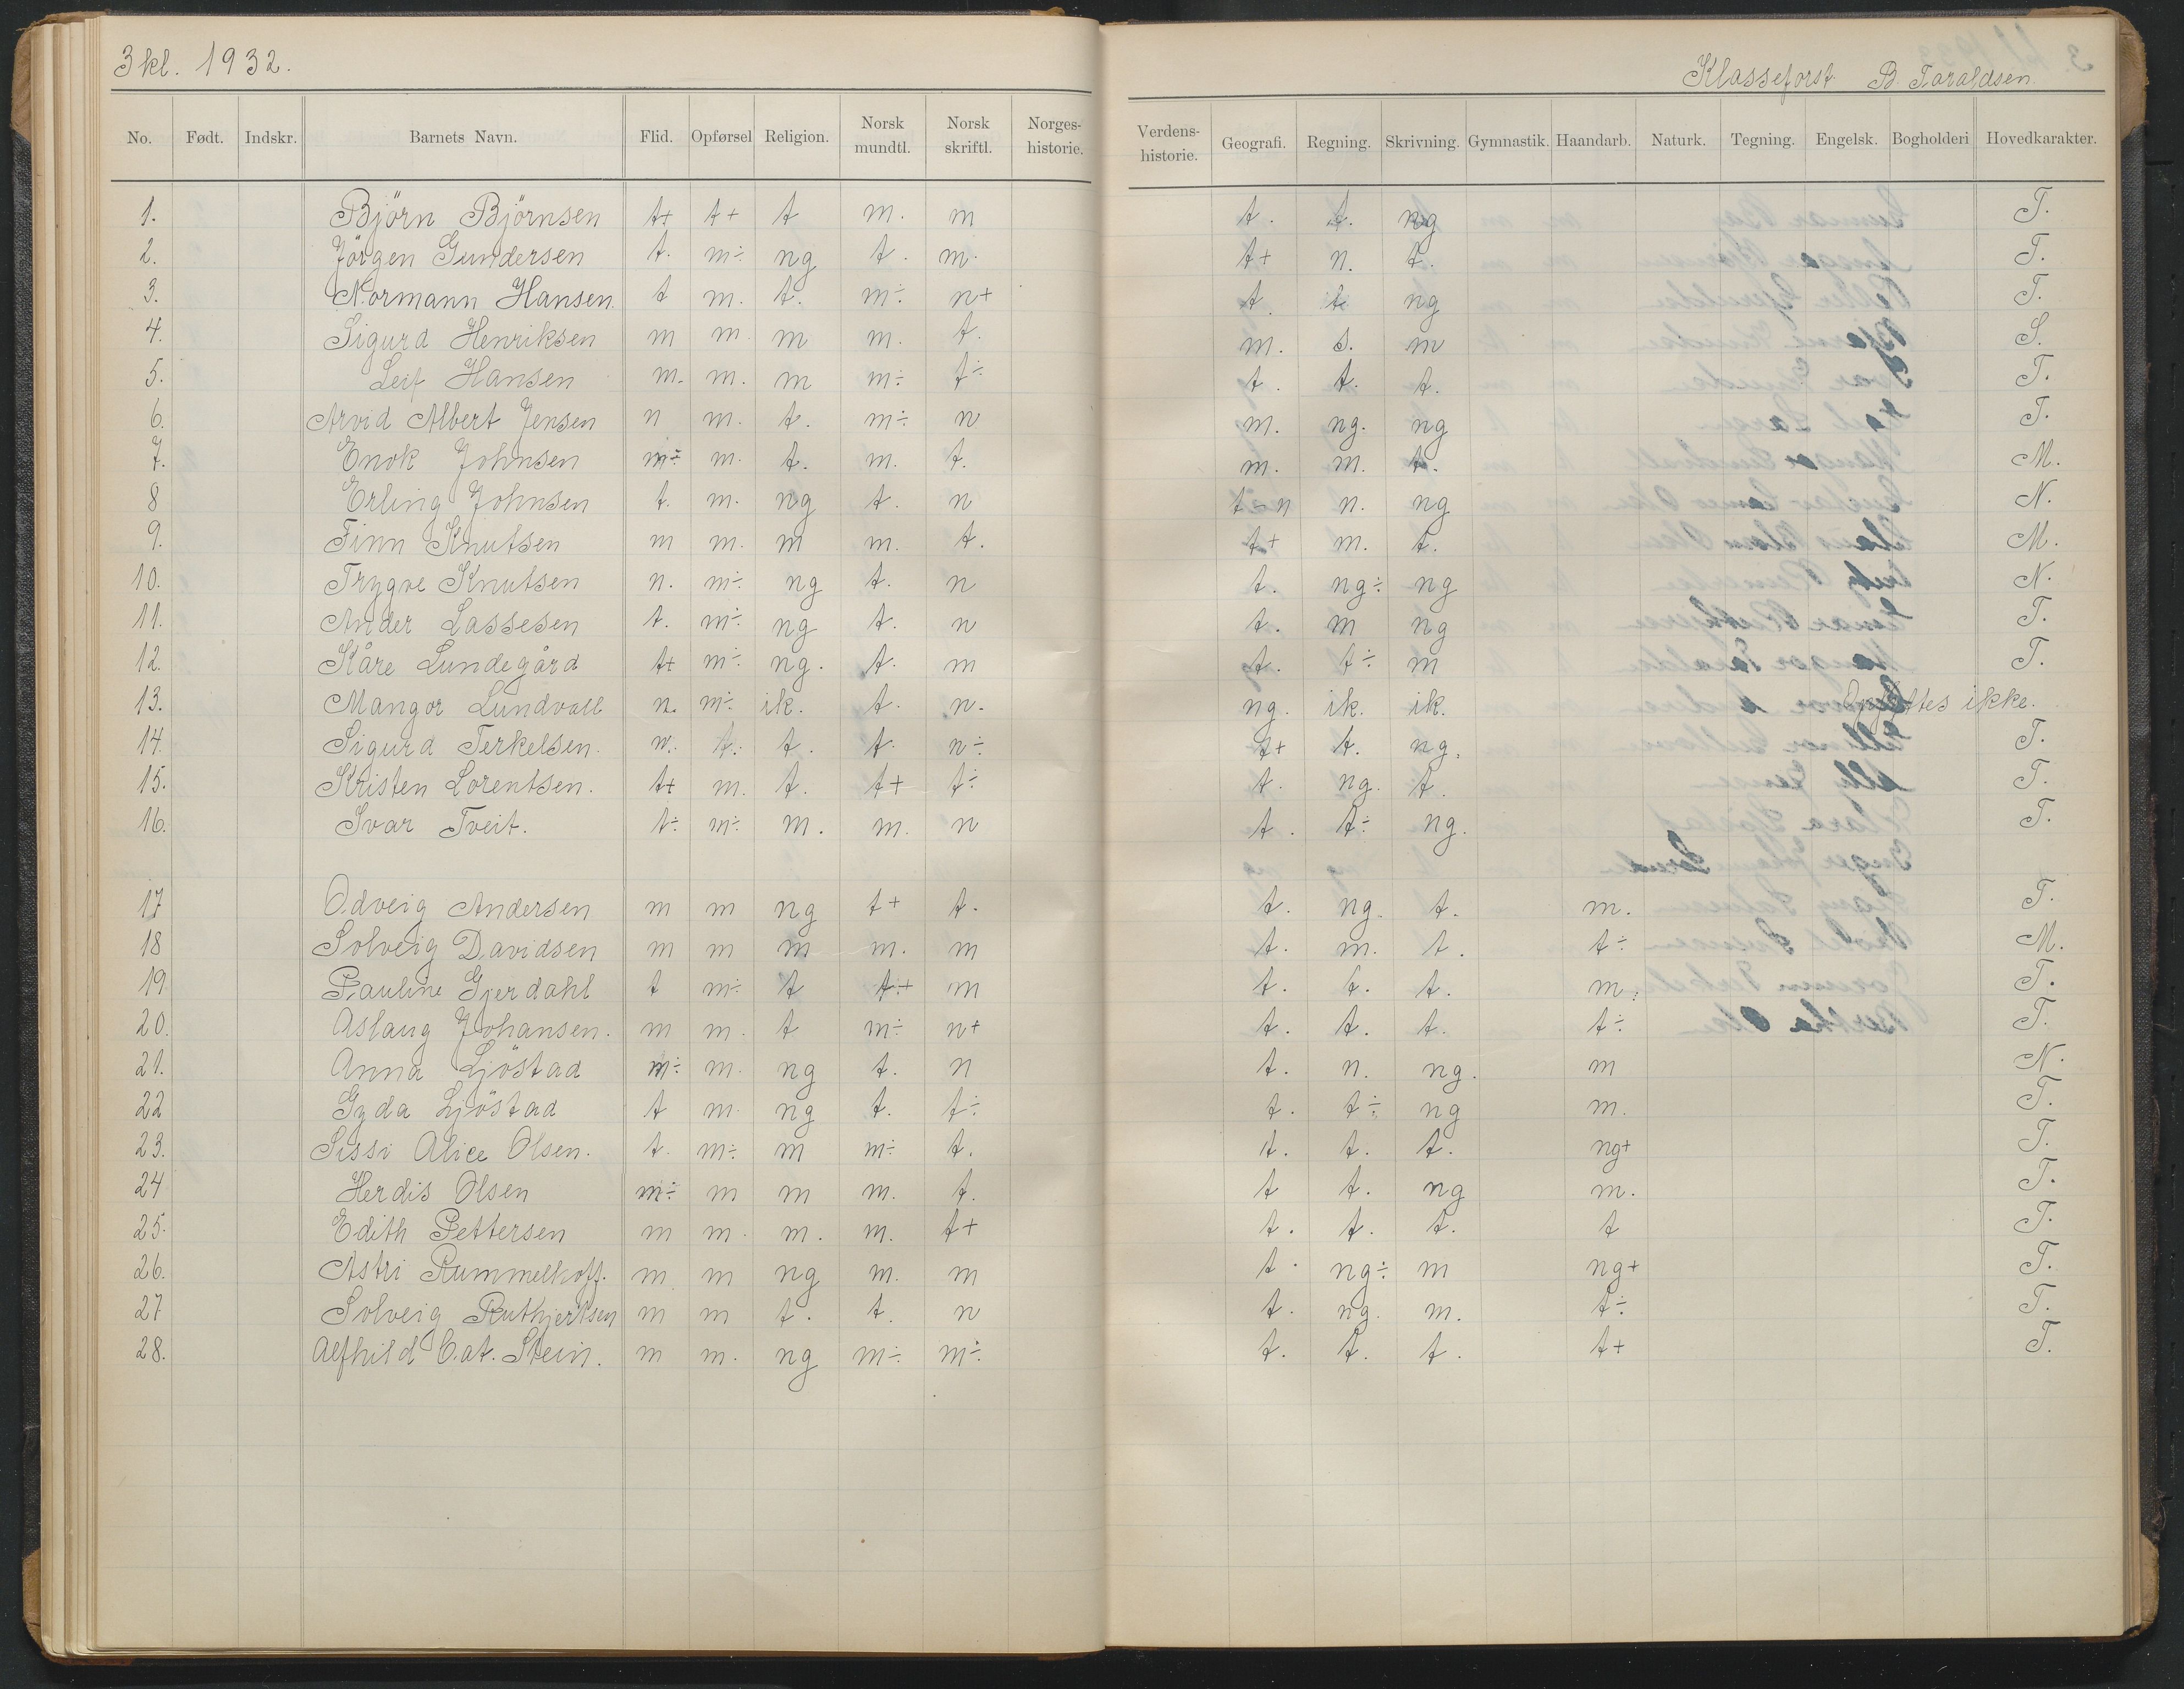 3 kl. 1932.
Klasseforst. B Taraldsen
No. Født. Indskr. Barnets Navn. Flid. Opførsel Religion. Norsk mundtl. Norsk skriftl. Norges-historie. Verdens-historie. Geografi. Regning. Skrivning. Gymnastik. Haandarb. Naturk. Tegning. Engelsk. Bogholderi Hovedkarakter.
1. Björn Björnsen t+ t+ t m. m t. t. ng T.
2. Jörgen Gundersen t. m÷ ng t. m. t+ n. t. T.
3. Normann Hansen t m. t. m÷ n+ t. t ng T.
4. Sigurd Henriksen m m. m m. t. m. s. m S.
5. Leif Hansen m. m. m m÷ t÷ t. t. t. T.
6. Arvid Albert Jensen n m. t. m÷ n m. ng. ng T.
7. Enok Johnsen m÷ m. t. m. t. m. m. t. M.
8 Erling Johnsen t. m. ng t. n t-n n. ng N.
9. Finn Knutsen m m. m m. t. t+ m. t. M.
10. Trygve Knutsen n. m÷ ng t. n t. ng÷ ng N.
11. Ander Lassesen t. m÷ ng t. n t. m ng T.
12. Kåre Lundegård t+ m÷ ng. t. m t. t÷ m T.
13. Mangor Lundvall n. m÷ ik. t. n. ng. ik. ik. Opflyttes ikke.
14. Sigurd Terkelsen. n. t. t. t. n÷ t+ t. ng. T.
15. Kristen Lorentsen. t+ m. t. t+ t÷ t. ng. t. T.
16. Ivar Tveit. t÷ m÷ m. m. n t. t÷ ng. T.
17 Odveig Andersen m m ng t+ t. t. ng. t. m. T.
18 Solveig Davidsen m m m m. m t. m. t. t÷ M.
19 Pauline Gjerdahl t m÷ t t+ m t. t. t. m. T.
20. Aslaug Johansen. m m. t m÷ n+ t. t. t. t÷ T.
21. Anna Ljöstad m÷ m. ng t. n t. n. ng. m N.
22 Gyda Ljöstad t m. ng t. t÷ t. t÷ ng m. T.
23. Sissi Alice Olsen. t. m÷ m m÷ t. t. t. t. ng+ T.
24 Herdis Olsen m÷ m m m. t. t t. ng m. T.
25. Edith Pettersen m m. m. m. t+ t. t. t. t T.
26. Astri Rummelhoff. m m ng m. m t. ng÷ m ng+ T.
27 Solveig Ruthjerksen m m t. t. n t. ng. m. t÷ T.
28. Alfhild Cat. Stein. m m. ng m÷ m÷ t. t. t. t+ T.